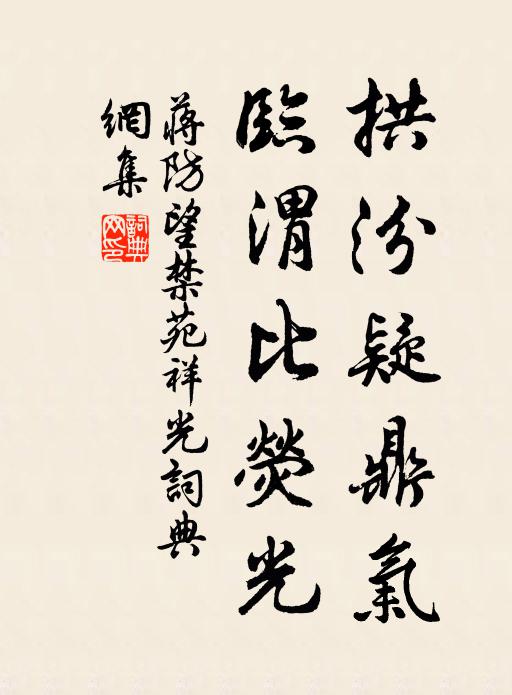 拱汾疑鼎氣
臨渭比熒光
蔣防望禁苑祥光詞典
網集
詞典
網印